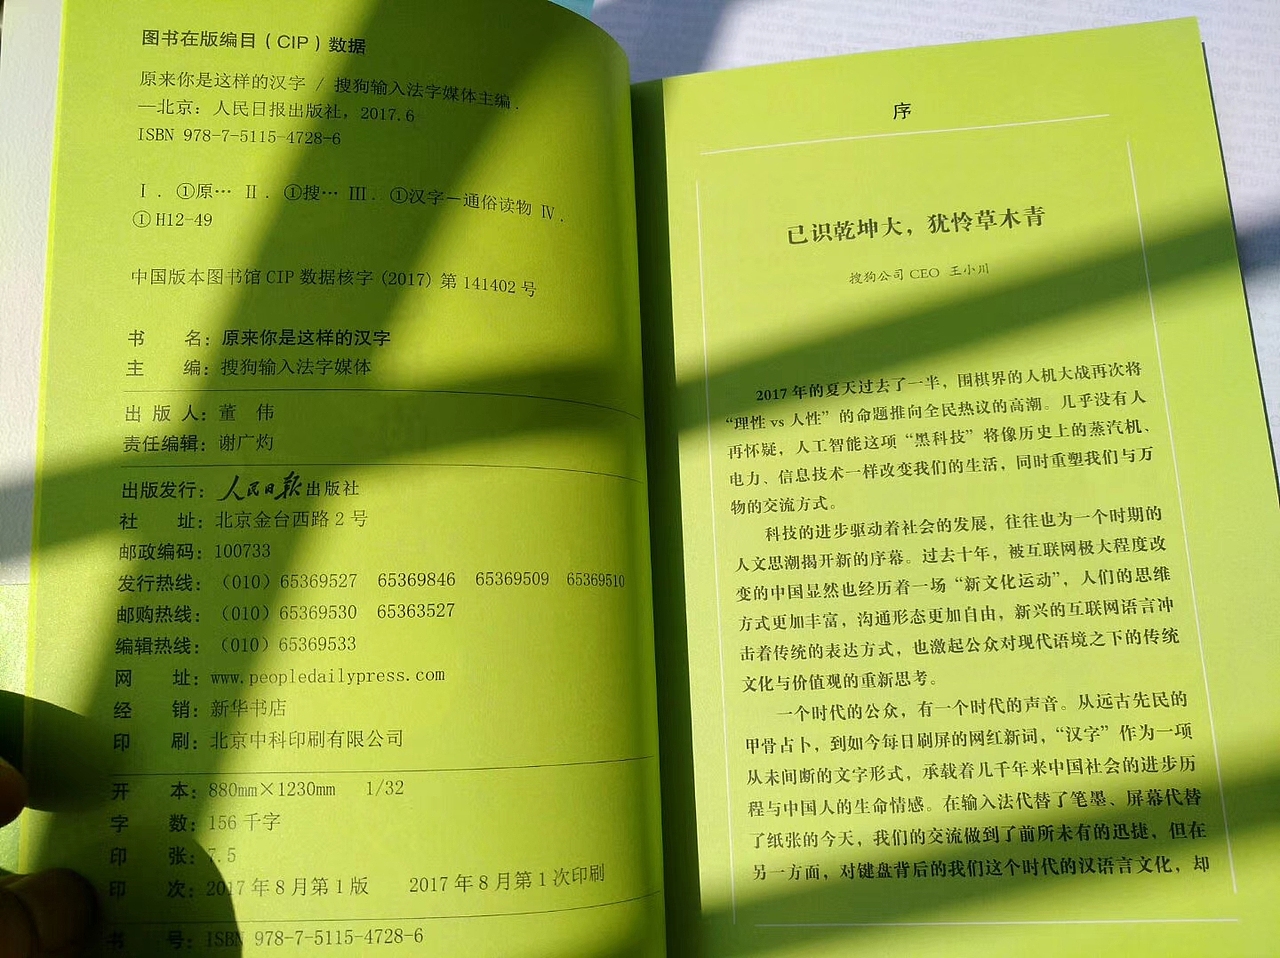 图书在版编目（CIP）数据
原来你是这样的汉字 / 搜狗输入法字媒体主编．
—北京：人民日报出版社，2017.6
ISBN 978-7-5115-4728-6
Ⅰ．①原… Ⅱ．①搜… Ⅲ．①汉字－通俗读物 Ⅳ．
①H12-49
中国版本图书馆 CIP 数据核字（2017）第 141402 号
书　　名：原来你是这样的汉字
主　　编：搜狗输入法字媒体
出 版 人：董　伟
责任编辑：谢广灼
出版发行：人民日报出版社
社　　址：北京金台西路 2 号
邮政编码：100733
发行热线：（010）65369527　65369846　65369509　65369510
邮购热线：（010）65369530　65363527
编辑热线：（010）65369533
网　　址：www.peopledailypress.com
经　　销：新华书店
印　　刷：北京中科印刷有限公司
开　　本：880mm×1230mm　1/32
字　　数：156 千字
印　　张：7.5
印　　次：2017 年 8 月第 1 版　　2017 年 8 月第 1 次印刷
书　　号：ISBN 978-7-5115-4728-6
序
已识乾坤大，犹怜草木青
搜狗公司 CEO 王小川
2017 年的夏天过去了一半，围棋界的人机大战再次将
“理性 vs 人性”的命题推向全民热议的高潮。几乎没有人
再怀疑，人工智能这项“黑科技”将像历史上的蒸汽机、
电力、信息技术一样改变我们的生活，同时重塑我们与万
物的交流方式。
科技的进步驱动着社会的发展，往往也为一个时期的
人文思潮揭开新的序幕。过去十年，被互联网极大程度改
变的中国显然也经历着一场“新文化运动”，人们的思维
方式更加丰富，沟通形态更加自由，新兴的互联网语言冲
击着传统的表达方式，也激起公众对现代语境之下的传统
文化与价值观的重新思考。
一个时代的公众，有一个时代的声音。从远古先民的
甲骨占卜，到如今每日刷屏的网红新词，“汉字”作为一项
从未间断的文字形式，承载着几千年来中国社会的进步历
程与中国人的生命情感。在输入法代替了笔墨、屏幕代替
了纸张的今天，我们的交流做到了前所未有的迅捷，但在
另一方面，对键盘背后的我们这个时代的汉语言文化，却